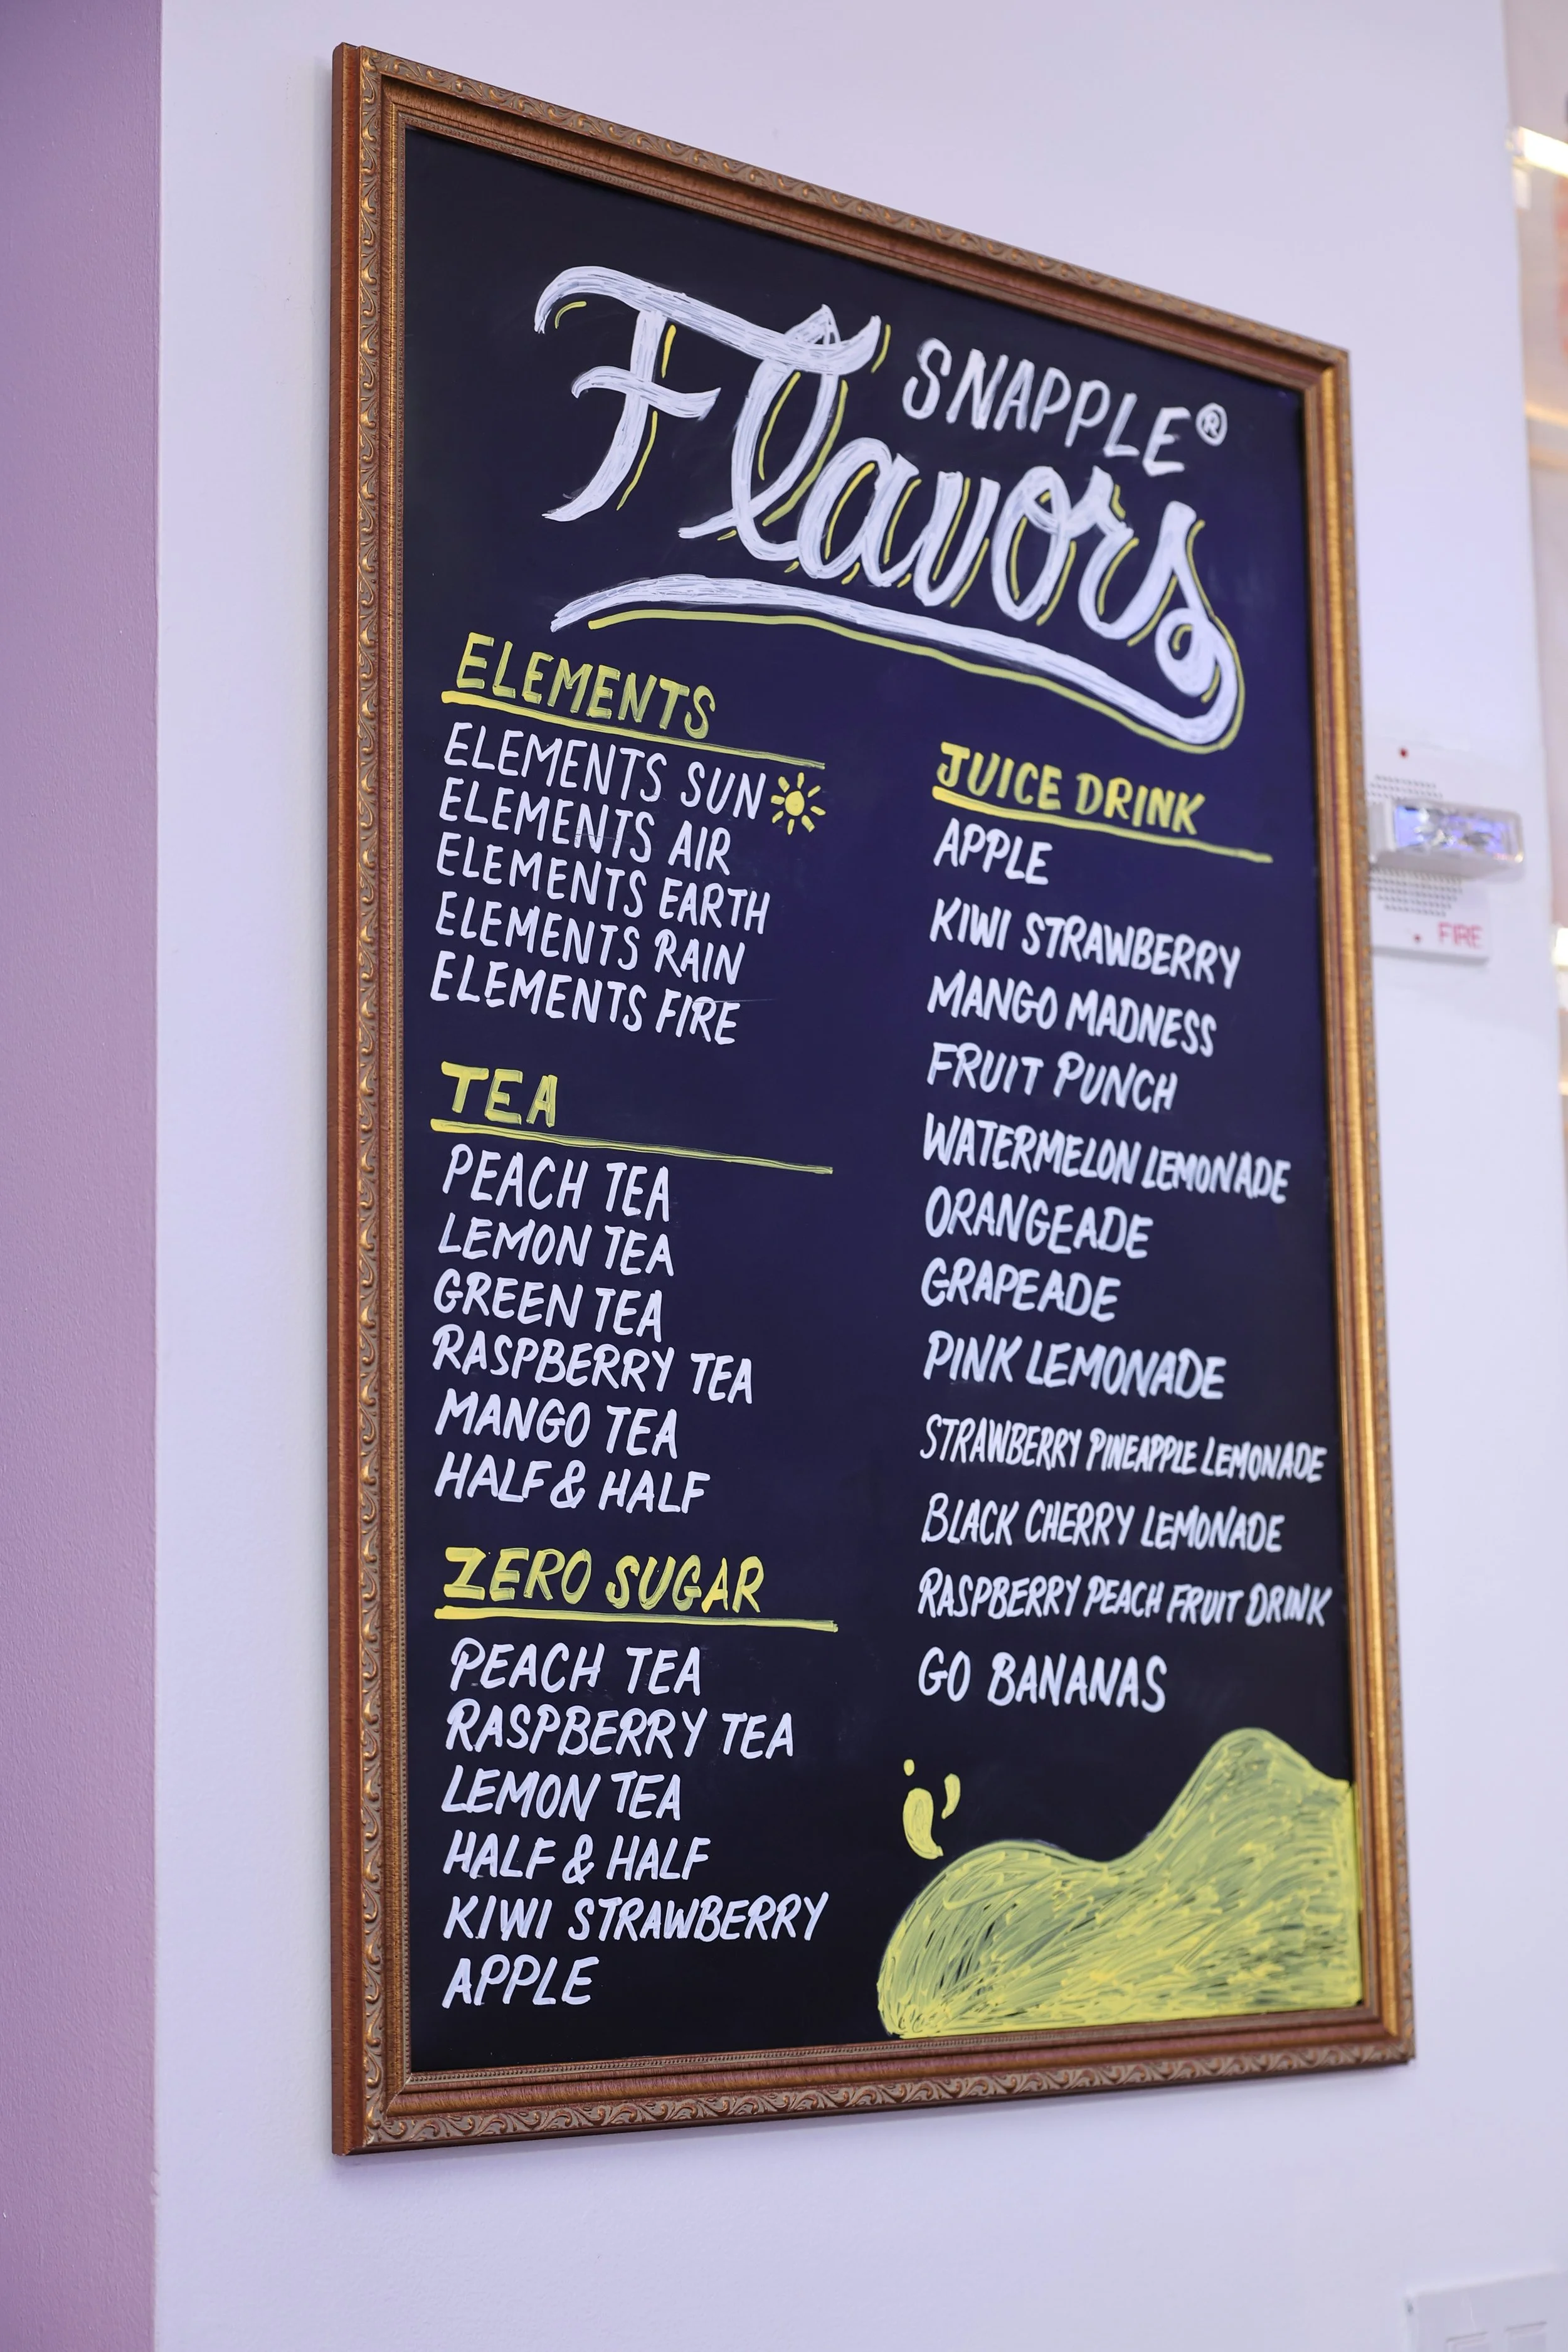 SNAPPLE®
Flavors
ELEMENTS
ELEMENTS SUN
ELEMENTS AIR
ELEMENTS EARTH
ELEMENTS RAIN
ELEMENTS FIRE
TEA
PEACH TEA
LEMON TEA
GREEN TEA
RASPBERRY TEA
MANGO TEA
HALF & HALF
ZERO SUGAR
PEACH TEA
RASPBERRY TEA
LEMON TEA
HALF & HALF
KIWI STRAWBERRY
APPLE
JUICE DRINK
APPLE
KIWI STRAWBERRY
MANGO MADNESS
FRUIT PUNCH
WATERMELON LEMONADE
ORANGEADE
GRAPEADE
PINK LEMONADE
STRAWBERRY PINEAPPLE LEMONADE
BLACK CHERRY LEMONADE
RASPBERRY PEACH FRUIT DRINK
GO BANANAS
FIRE